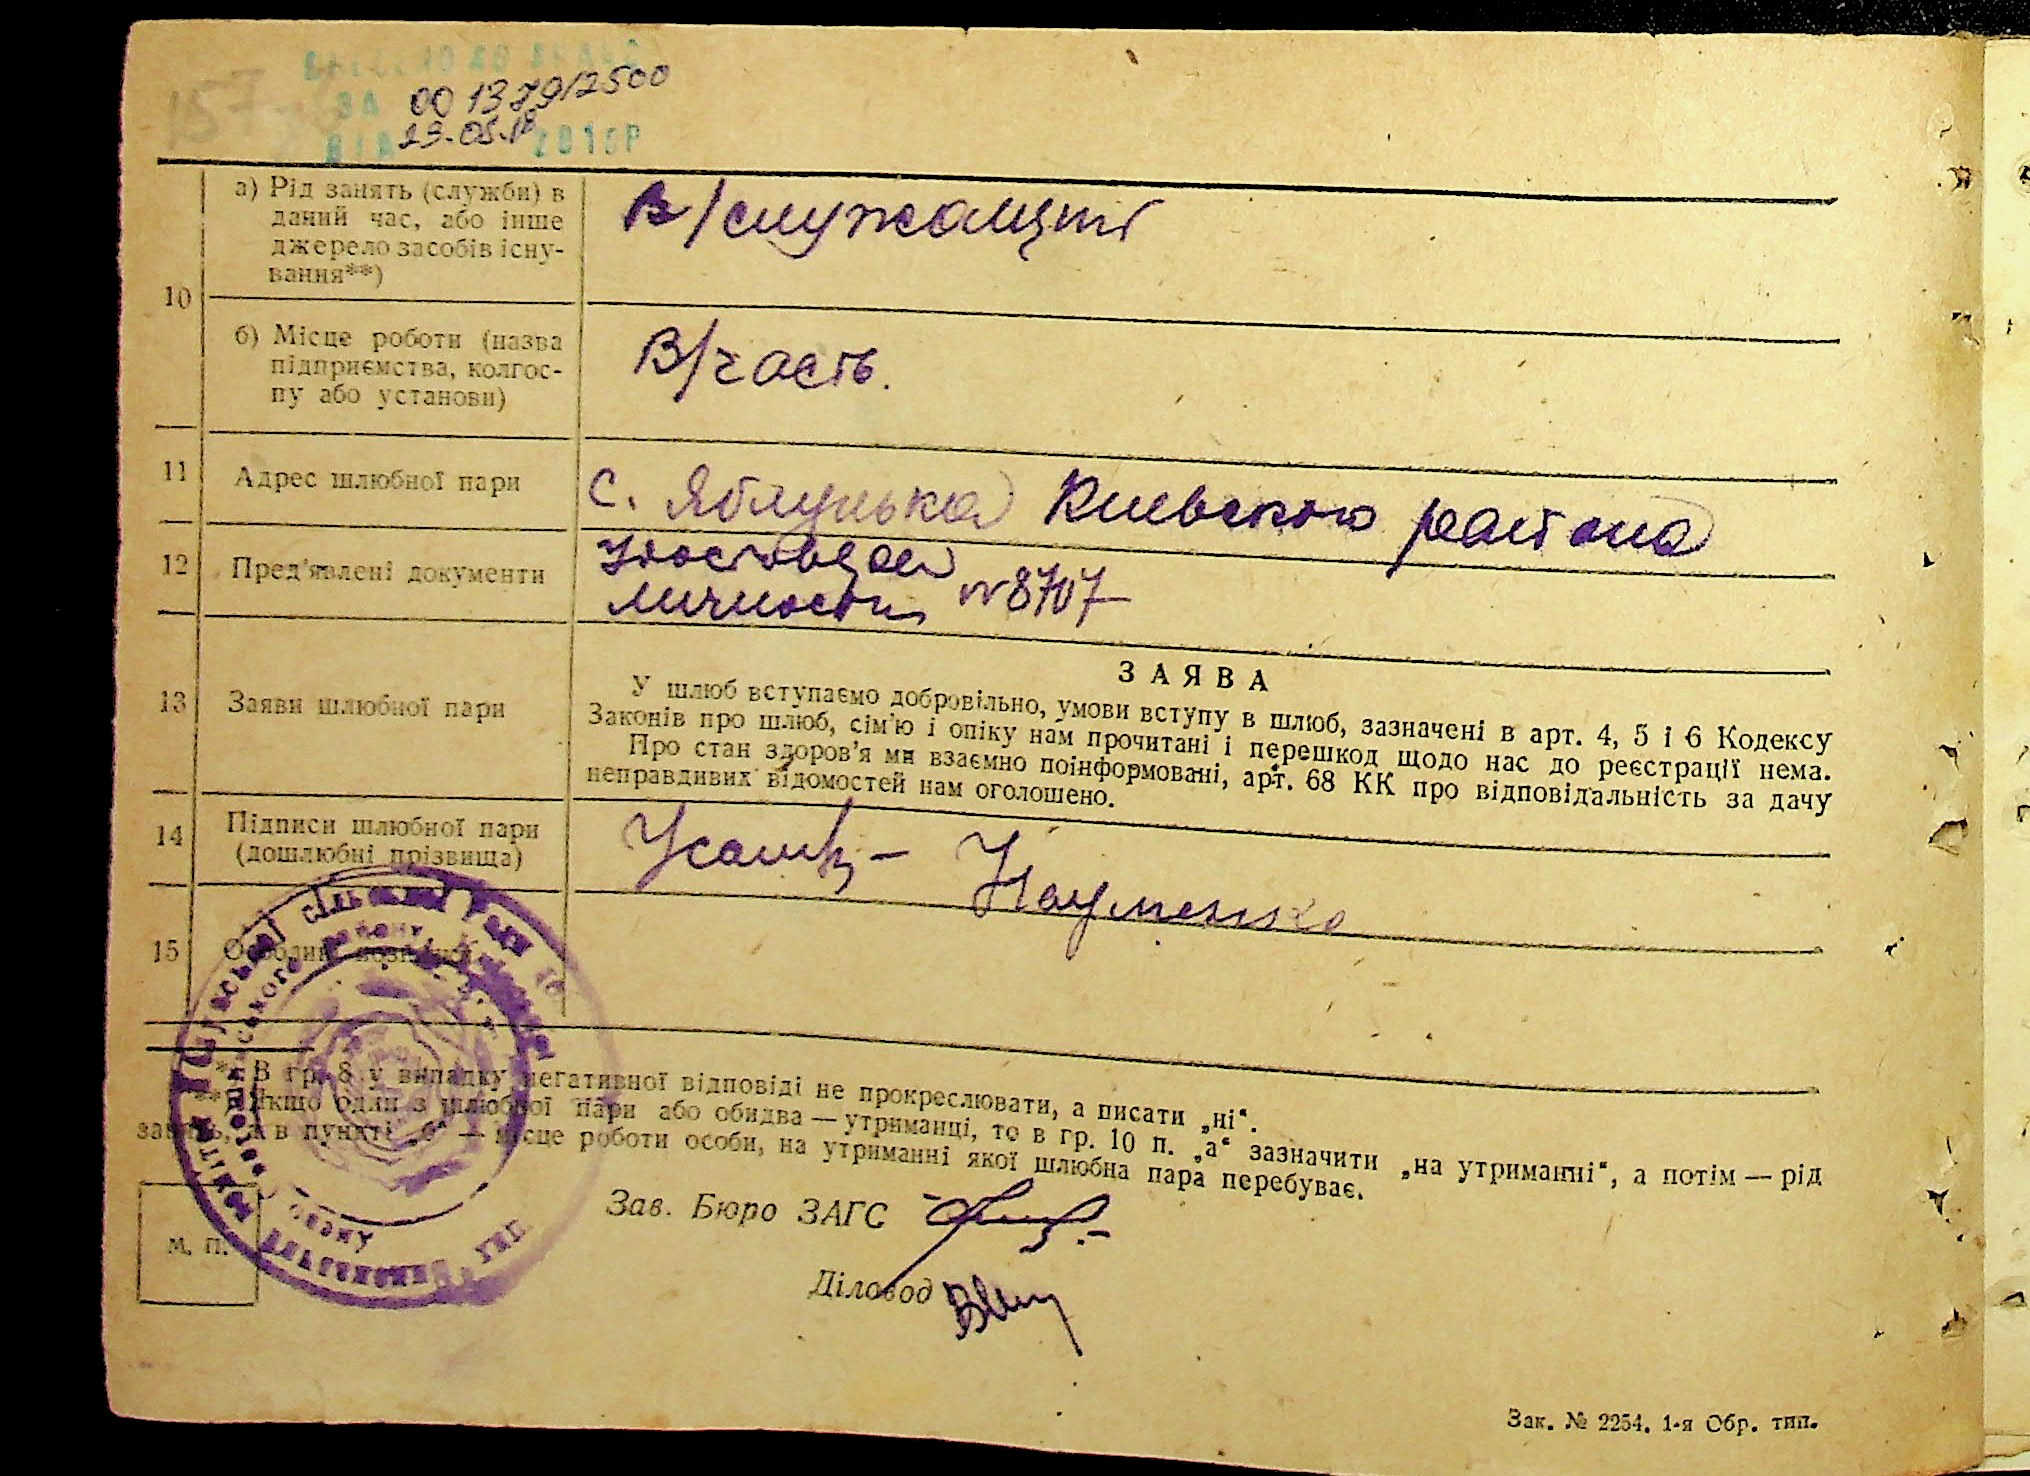 157
ВНЕСЕНО ДО ДРАЦС
ЗА 00 1379/2500
ВІД 23.05.18 201 Р
10
а) Рід занять (служби) в
даний час, або інше
джерело засобів існу-
вання**)
В/служащий
б) Місце роботи (назва
підприємства, колгос-
пу або установи)
В/часть.
11 Адрес шлюбної пари
с. Яблунька Киевского района
12 Пред'явлені документи
личности №8707
13 Заяви шлюбної пари
ЗАЯВА
У шлюб вступаємо добровільно, умови вступу в шлюб, зазначені в арт. 4, 5 і 6 Кодексу
Законів про шлюб, сім'ю і опіку нам прочитані і перешкод щодо нас до реєстрації нема.
Про стан здоров'я ми взаємно поінформовані, арт. 68 КК про відповідальність за дачу
неправдивих відомостей нам оголошено.
14 Підписи шлюбної пари
(дошлюбні прізвища)
Науменко
15
*) В гр. 8 у випадку негативної відповіді не прокреслювати, а писати „ні“.
**) Якщо один з шлюбної пари або обидва — утриманці, то в гр. 10 п. „а“ зазначити „на утриманні“, а потім — рід
занять, а в пункті „б“ — місце роботи особи, на утриманні якої шлюбна пара перебуває.
Зав. Бюро ЗАГС
М. П.
Діловод
Зак. № 2254. 1-я Обр. тип.